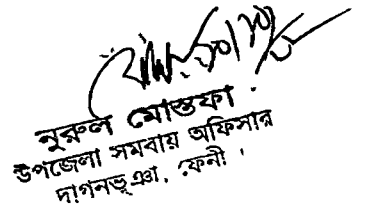 নুরুল মোস্তফা
উপজেলা সমবায় অফিসার
দাগনভূঞা, ফেনী।